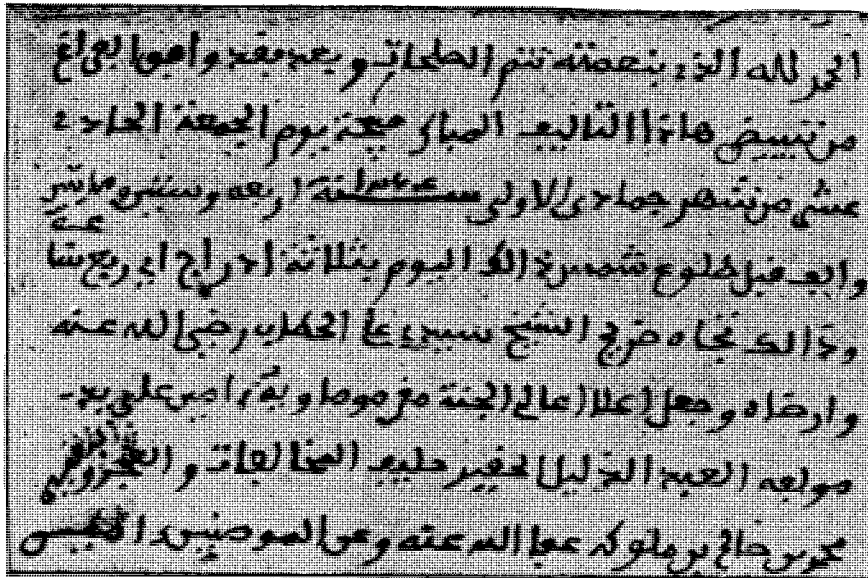 الحمد لله الذي بنعمته تتم الصلحات وبعد فقد وافق الفراغ
من تبييض هاذا التاليف المبارك صبيحة يوم الجمعة الحادي
عشر من شهر جمادى الاولى سنة اربعة وستين ومايتين
والف قبل طلوع شمس ذالك اليوم بثلاثة ادراج اي ربع ساعة
وذالك تجاه ضريح الشيخ سيدي علي الحطاب رضي الله عنه
وارضاه وجعل اعلا اعالي الجنة ماواه امين على يد
مولفه العبد الذليل الحقير حليف المخالفات و
محمد بن صالح بن ملوكه عفا الله عنه وعن المومنين امين